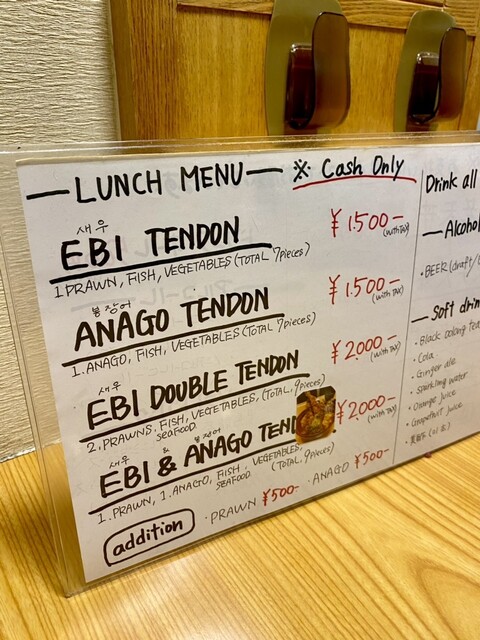 LUNCH MENU ※ Cash Only
새우
EBI TENDON ¥1.500- (with TAX)
1 PRAWN, FISH, VEGETABLES (TOTAL 7pieces)
붕장어
ANAGO TENDON ¥1.500- (with TAX)
1. ANAGO, FISH, VEGETABLES (TOTAL 7pieces)
새우
EBI DOUBLE TENDON ¥2.000- (with TAX)
2. PRAWNS. FISH, VEGETABLES, (TOTAL. 9pieces)
SEAFOOD
새우 붕장어
EBI & ANAGO TEND ¥2,000- (with TAX)
1. PRAWN, 1. ANAGO, FISH, VEGETABLES,
SEAFOOD (TOTAL. 9pieces)
addition ・PRAWN ¥500- ・ANAGO ¥500-
Drink all
Alcohol
・BEER (draft/
Soft drin
・Black oolong tea
・Cola
・Ginger ale
・Sparkling water
・Orange juice
・Grapefruit juice